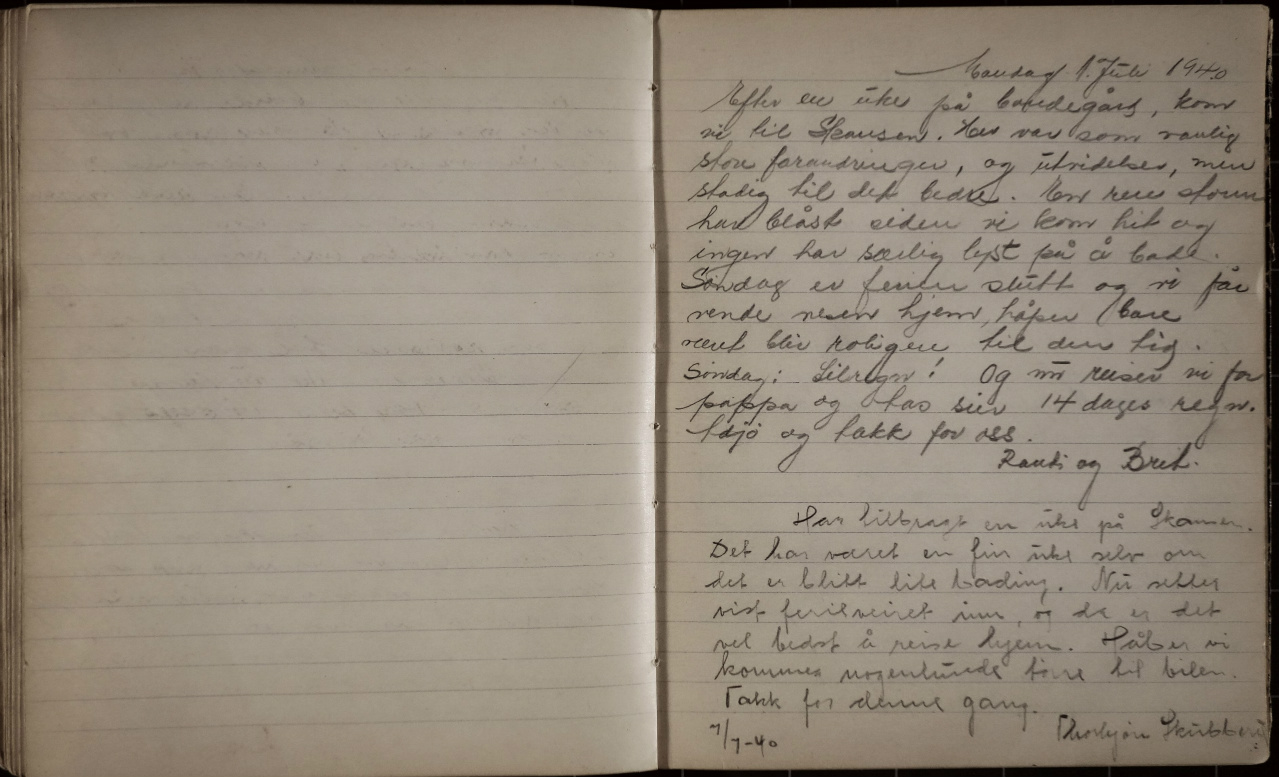 Mandag 1. Juli 1940
Efter en uke på bondegård, kom
vi til Skansen. Her var som vanlig
store forandringer, og utvidelser, men
stadig til det bedre. En ren storm
har blåst siden vi kom hit og
ingen har særlig lyst på å bade.
Søndag er ferien slutt og vi får
vende nesen hjem, håper bare
været blir roligere til den tid.
Søndag: Silregn! Og nu reiser vi for
pappa og sier 14 dages regn.
Adjø og takk for oss.
Randi og Brit.
Har tilbragt en uke på Skansen.
Det har været en fin uke selv om
det er blitt lite bading. Nu setter
vist feriveiret inn, og da er det
vel bedst å reise hjem. Håber vi
kommer nogenlunde tørre til bilen.
Takk for denne gang.
7/7-40
Thorbjørn